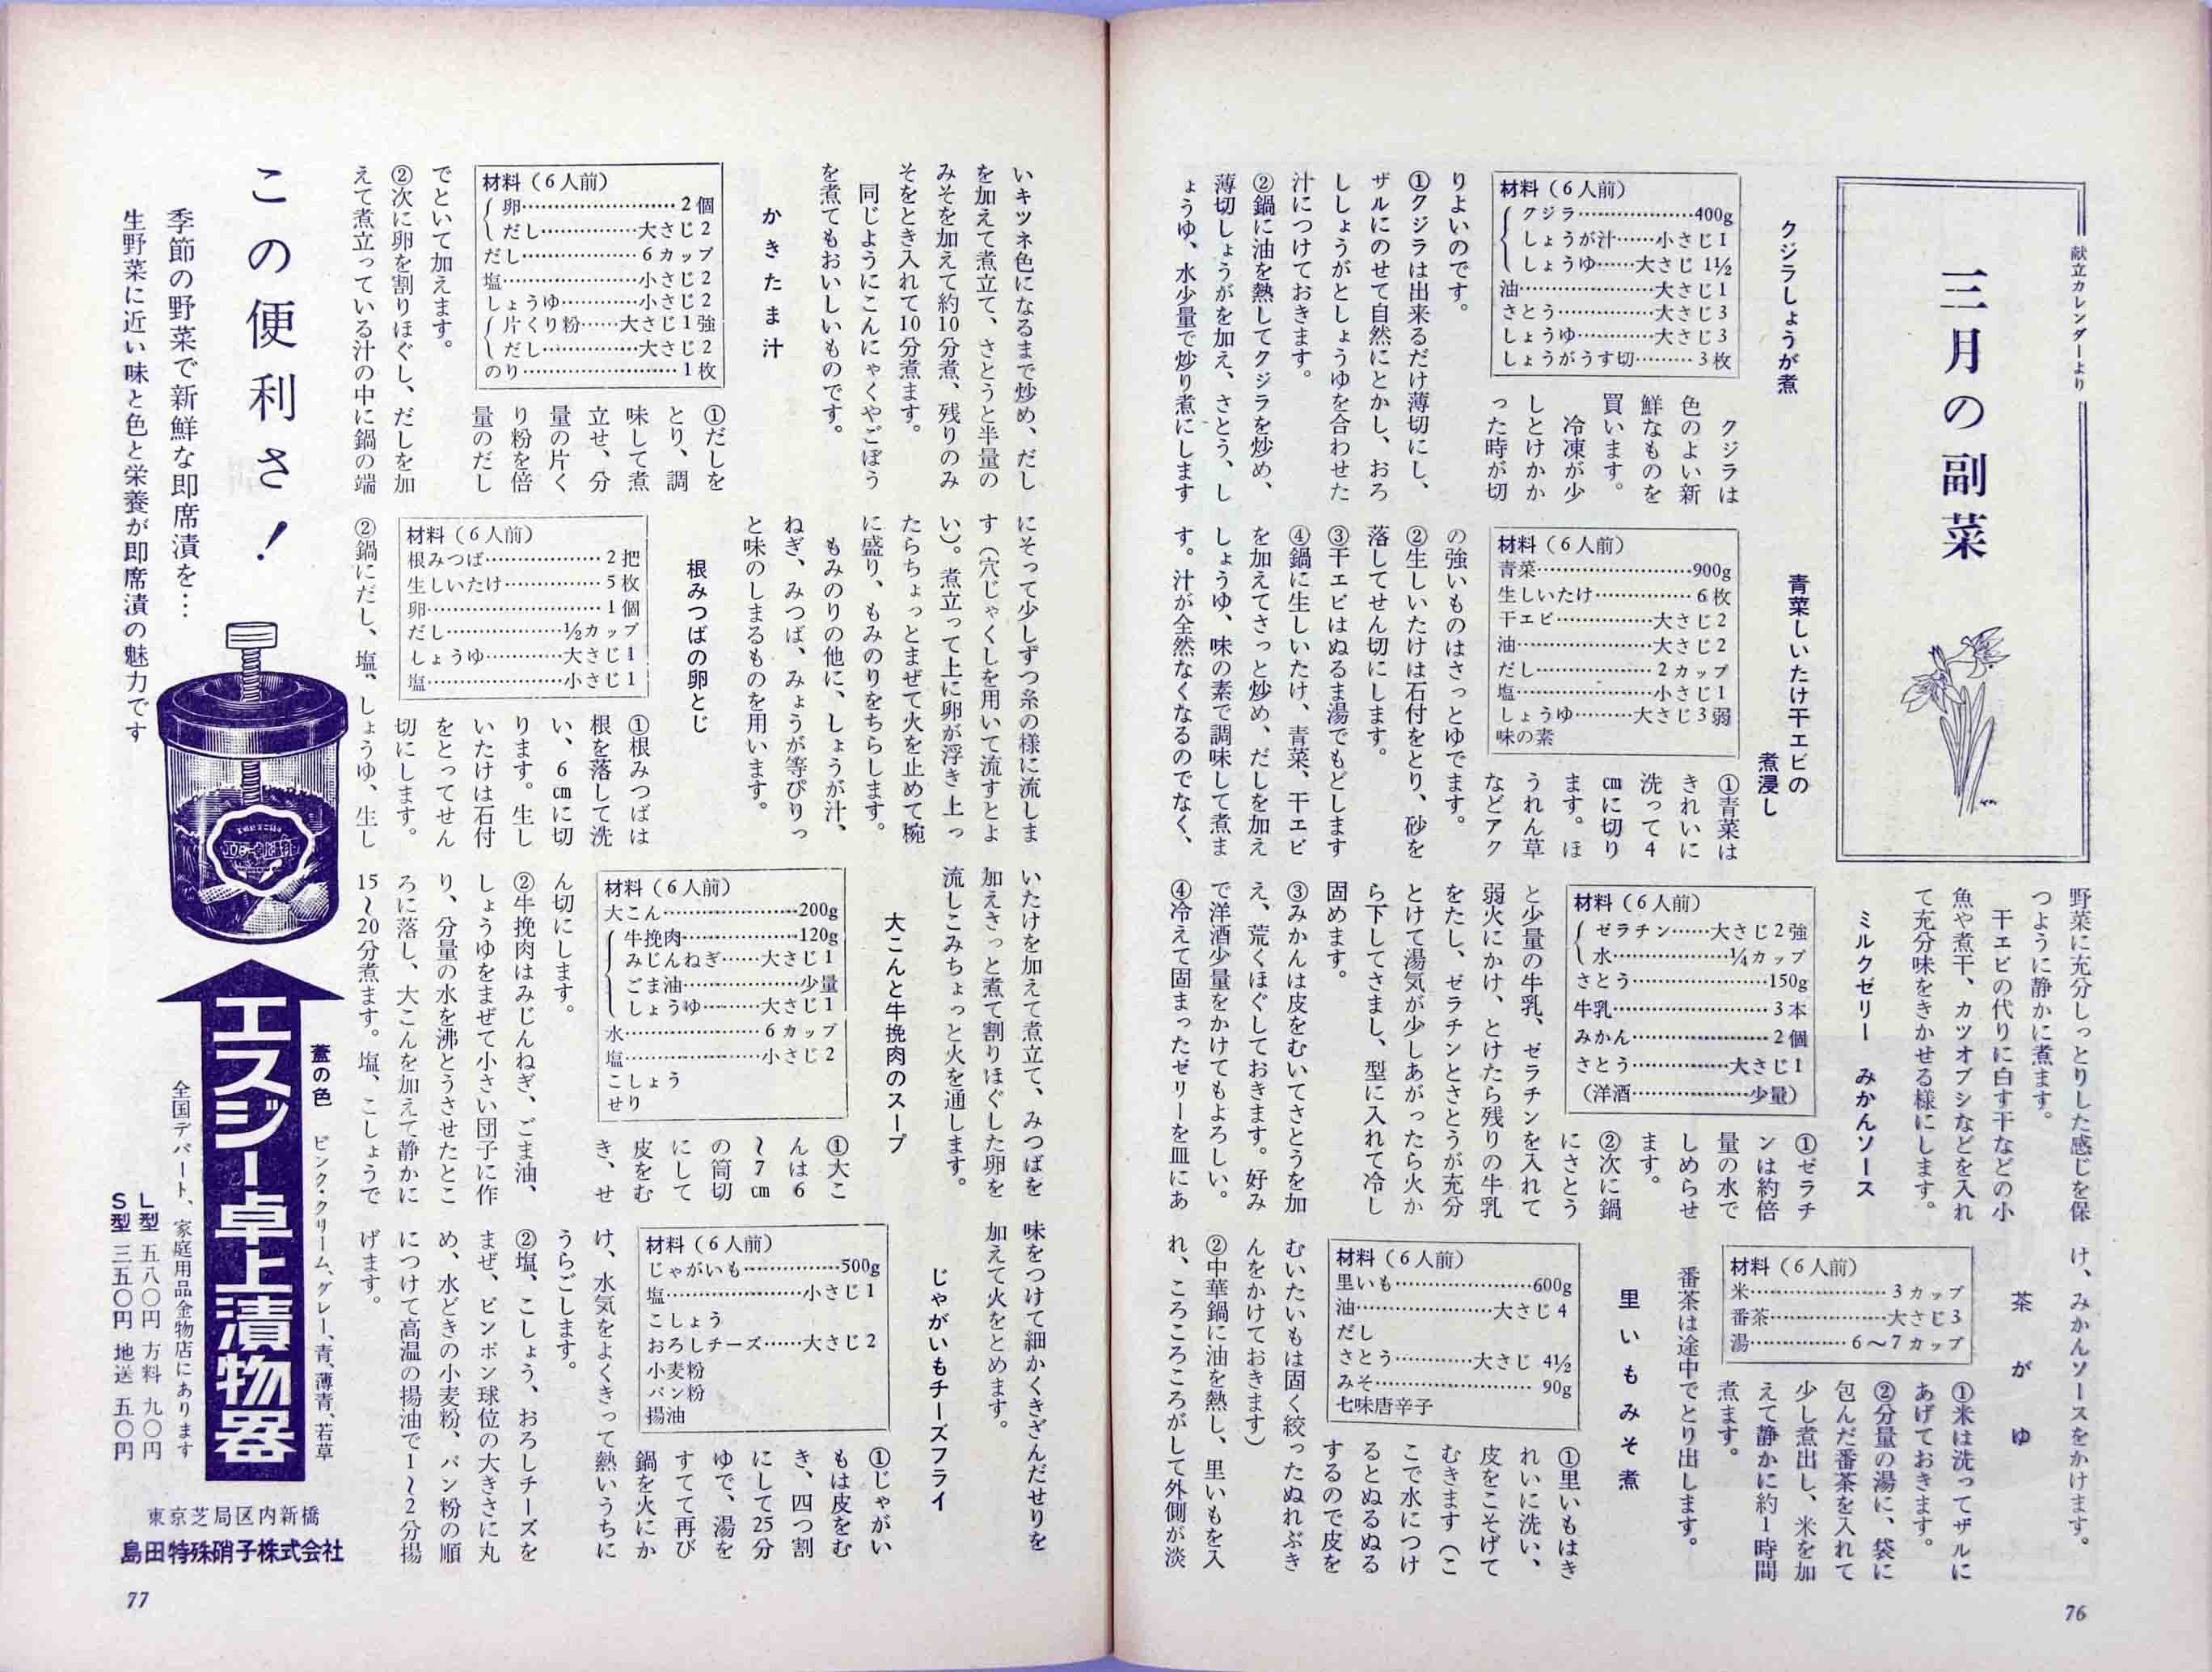 献立カレンダーより
三月の副菜
クジラしょうが煮
材料（6人前）
クジラ…………………400g
しょうが汁……小さじ1
しょうゆ……大さじ1½
油……………………大さじ1
さとう………………大さじ3
しょうゆ……………大さじ3
しょうがうす切………3枚
クジラは
色のよい新
鮮なものを
買います。
冷凍が少
しとけかか
った時が切
りよいのです。
①クジラは出来るだけ薄切にし、
ザルにのせて自然にとかし、おろ
ししょうがとしょうゆを合わせた
汁につけておきます。
②鍋に油を熱してクジラを炒め、
薄切しょうがを加え、さとう、し
ょうゆ、水少量で炒り煮にします
青菜しいたけ干エビの
煮浸し
材料（6人前）
青菜……………………900g
生しいたけ……………6枚
干エビ………………大さじ2
油……………………大さじ2
だし…………………2カップ
塩……………………小さじ1
しょうゆ………大さじ3弱
味の素
①青菜は
きれいに
洗って4
cmに切り
ます。ほ
うれん草
などアク
の強いものはさっとゆでます。
②生しいたけは石付をとり、砂を
落してせん切にします。
③干エビはぬるま湯でもどします
④鍋に生しいたけ、青菜、干エビ
を加えてさっと炒め、だしを加え
しょうゆ、味の素で調味して煮ま
す。汁が全然なくなるのでなく、
野菜に充分しっとりした感じを保
つように静かに煮ます。
干エビの代りに白す干などの小
魚や煮干、カツオブシなどを入れ
て充分味をきかせる様にします。
ミルクゼリー　みかんソース
材料（6人前）
ゼラチン……大さじ2強
水………………¼カップ
さとう…………………150g
牛乳……………………3本
みかん…………………2個
さとう……………大さじ1
（洋酒………………少量）
①ゼラチ
ンは約倍
量の水で
しめらせ
ます。
②次に鍋
にさとう
と少量の牛乳、ゼラチンを入れて
弱火にかけ、とけたら残りの牛乳
をたし、ゼラチンとさとうが充分
とけて湯気が少しあがったら火か
ら下してさまし、型に入れて冷し
固めます。
③みかんは皮をむいてさとうを加
え、荒くほぐしておきます。好み
で洋酒少量をかけてもよろしい。
④冷えて固まったゼリーを皿にあ
け、みかんソースをかけます。
茶がゆ
材料（6人前）
米…………………3カップ
番茶………………大さじ3
湯……………6～7カップ
①米は洗ってザルに
あげておきます。
②分量の湯に、袋に
包んだ番茶を入れて
少し煮出し、米を加
えて静かに約1時間
煮ます。
番茶は途中でとり出します。
里いもみそ煮
材料（6人前）
里いも…………………600g
油…………………大さじ4
だし
さとう…………大さじ4½
みそ……………………90g
七味唐辛子
①里いもはき
れいに洗い、
皮をこそげて
むきます（こ
こで水につけ
るとぬるぬる
するので皮を
むいたいもは固く絞ったぬれぶき
んをかけておきます）
②中華鍋に油を熱し、里いもを入
れ、ころころころがして外側が淡
76
いキツネ色になるまで炒め、だし
を加えて煮立て、さとうと半量の
みそを加えて約10分煮、残りのみ
そをとき入れて10分煮ます。
同じようにこんにゃくやごぼう
を煮てもおいしいものです。
かきたま汁
材料（6人前）
卵……………………2個
だし……………大さじ2
だし………………6カップ
塩…………………小さじ2
しょうゆ…………小さじ2
片くり粉……大さじ1強
だし……………大さじ2
のり……………………1枚
①だしを
とり、調
味して煮
立せ、分
量の片く
り粉を倍
量のだし
でといて加えます。
②次に卵を割りほぐし、だしを加
えて煮立っている汁の中に鍋の端
にそって少しずつ糸の様に流しま
す（穴じゃくしを用いて流すとよ
い）。煮立って上に卵が浮き上っ
たらちょっとまぜて火を止めて椀
に盛り、もみのりをちらします。
もみのりの他に、しょうが汁、
ねぎ、みつば、みょうが等ぴりっ
と味のしまるものを用います。
根みつばの卵とじ
材料（6人前）
根みつば………………2把
生しいたけ……………5枚
卵………………………1個
だし………………½カップ
しょうゆ…………大さじ1
塩…………………小さじ1
①根みつばは
根を落して洗
い、6cmに切
ります。生し
いたけは石付
をとってせん
切にします。
②鍋にだし、塩、しょうゆ、生し
いたけを加えて煮立て、みつばを
加えさっと煮て割りほぐした卵を
流しこみちょっと火を通します。
大こんと牛挽肉のスープ
材料（6人前）
大こん…………………200g
牛挽肉………………120g
みじんねぎ……大さじ1
ごま油………………少量
しょうゆ………大さじ1
水…………………6カップ
塩…………………小さじ2
こしょう
せり
①大こ
んは6
～7cm
の筒切
にして
皮をむ
き、せ
ん切にします。
②牛挽肉はみじんねぎ、ごま油、
しょうゆをまぜて小さい団子に作
り、分量の水を沸とうさせたとこ
ろに落し、大こんを加えて静かに
15～20分煮ます。塩、こしょうで
味をつけて細かくきざんだせりを
加えて火をとめます。
じゃがいもチーズフライ
材料（6人前）
じゃがいも……………500g
塩…………………小さじ1
こしょう
おろしチーズ……大さじ2
小麦粉
パン粉
揚油
①じゃがい
もは皮をむ
き、四つ割
にして25分
ゆで、湯を
すてて再び
鍋を火にか
け、水気をよくきって熱いうちに
うらごします。
②塩、こしょう、おろしチーズを
まぜ、ピンポン球位の大きさに丸
め、水どきの小麦粉、パン粉の順
につけて高温の揚油で1～2分揚
げます。
この便利さ！
季節の野菜で新鮮な即席漬を…
生野菜に近い味と色と栄養が即席漬の魅力です
エスジー卓上漬物器
蓋の色　ピンク・クリーム、グレー、青、薄青、若草
全国デパート、家庭用品金物店にあります
L型　五八〇円　方料　九〇円
S型　三五〇円　地送　五〇円
東京芝局区内新橋
島田特殊硝子株式会社
77